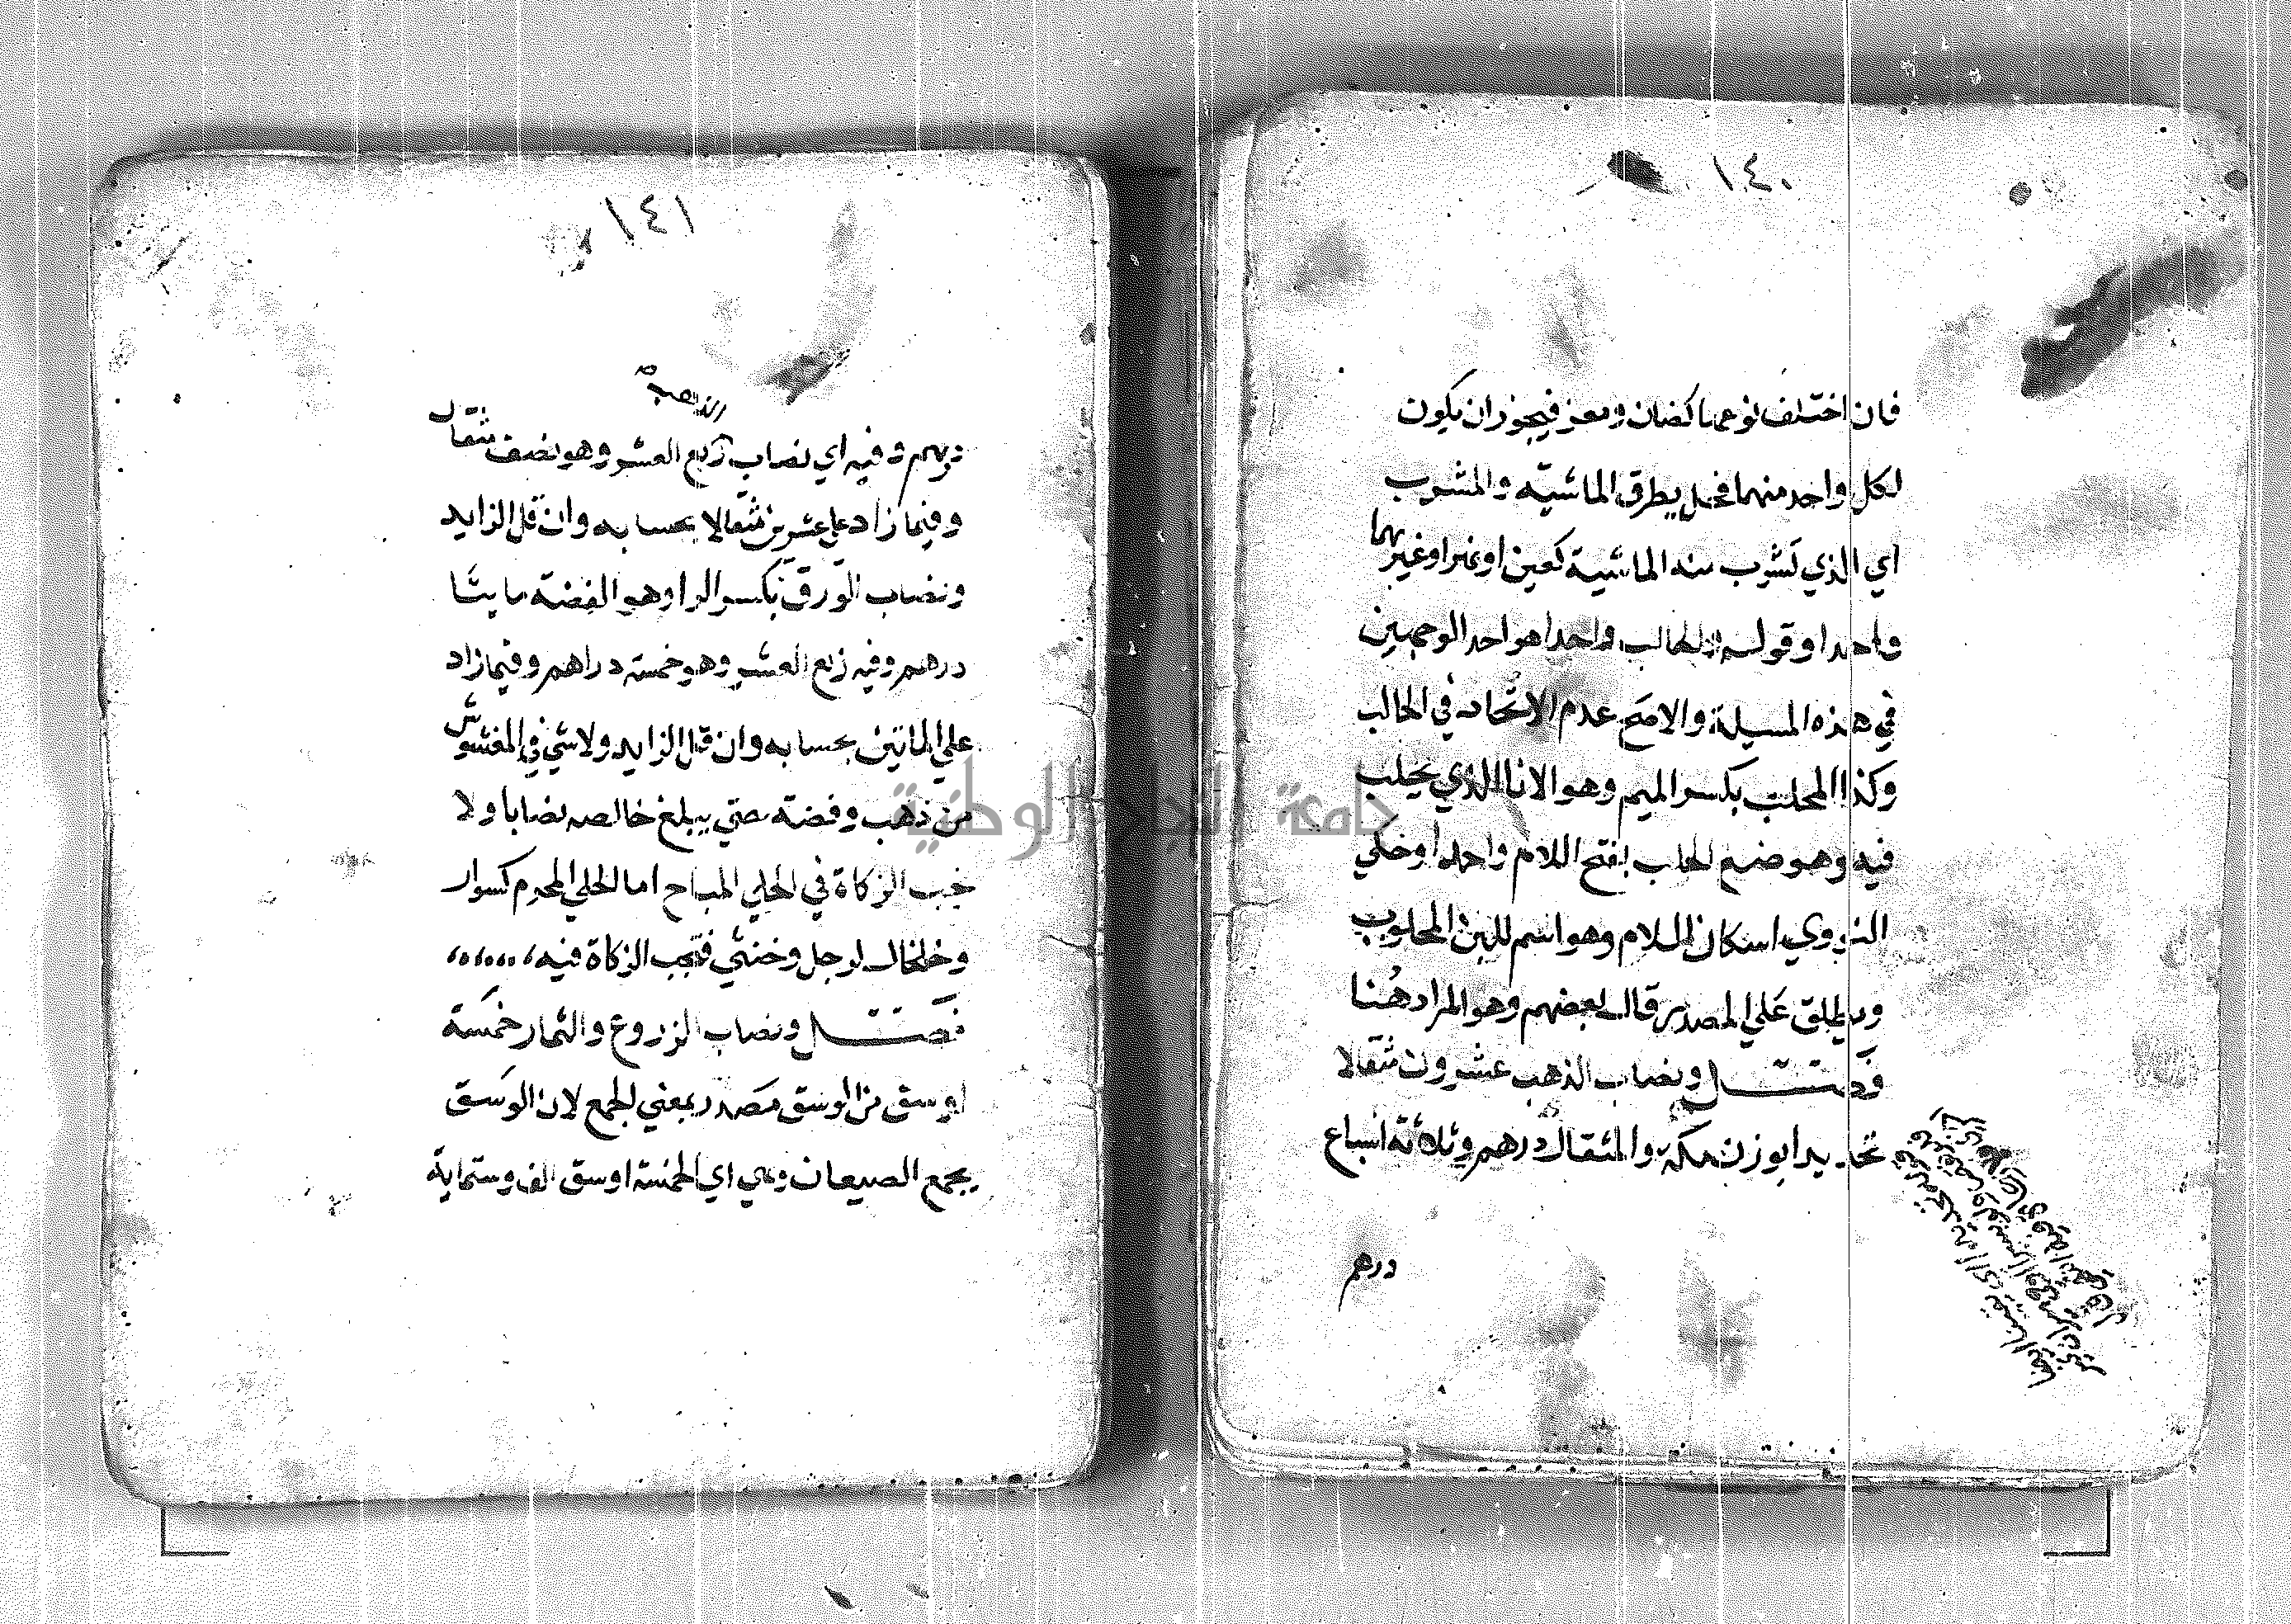 ١٤٠
فان اختلف نوعهما كضان ومعز فيجوز ان يكون
لكل واحد منهما فحل يطرق الماشية والمشرب
اي الذي تشرب منه الماشية كعين او نهر او غيرهما
واحدا وقوله والحالب واحدا هو احد الوجهين
في هذه المسيلة والاصح عدم الاتحاد في الحالب
وكذا المحلب بكسر الميم وهو الانا الذي يحلب
فيه وهو ضع الحلب بفتح اللام واحدا وحكي
النووي اسكان اللام وهو اسم للبن المحلوب
ويطلق علي المصدر قال بعضهم وهو المراد هنا
فصل ونصاب الذهب عشرون مثقالا
تحديدا بوزن مكة والمثقال درهم وثلاثة اسباع
درهم
١٤١
الذهب صح
درهم وفيه اي نصاب ربع العشر وهو نصف مثقال
وفيما زاد علي عشرين مثقالا بحسابه وان قل الزايد
ونصاب الورق بكسر الرا وهو الفضة مايتا
درهم وفيه ربع العشر وهو خمسة دراهم وفيما زاد
علي الماتين بحسابه وان قل الزايد ولا شي في المغشوش
من ذهب وفضة حتي يبلغ خالصه نصابا ولا
تجب الزكاة في الحلي المباح اما الحلي المحرم كسوار
وخلخال لرجل وخنثي فتجب الزكاة فيه
فصل ونصاب الزروع والثمار خمسة
اوسق من الوسق مصدر بمعني الجمع لان الوسق
يجمع الصيعان وهي اي الخمسة اوسق الف وستماية
جامعة النجاح الوطنية